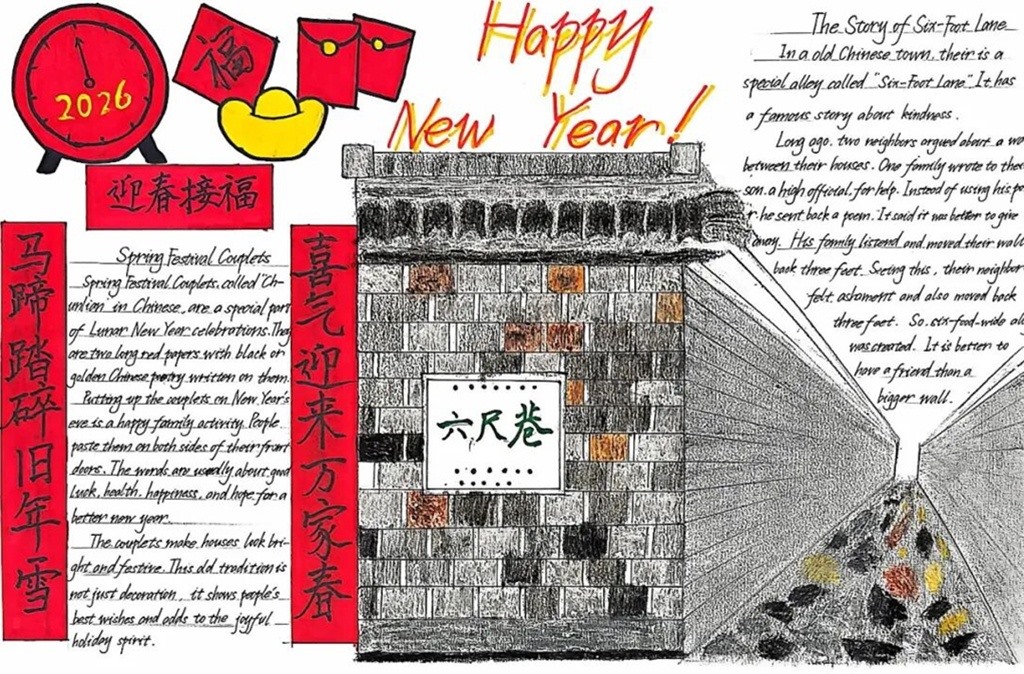 2026
福
Happy
New Year!
迎春接福
马蹄踏碎旧年雪
喜气迎来万家春
Spring Festival Couplets
Spring Festival Couplets, called "Ch-
unlian" in Chinese, are a special part
of Lunar New Year celebrations. They
are two long red papers with black or
golden Chinese written on them.
Putting up the couplets on New Year's
eve is a happy family activity. People
paste them on both sides of their front
doors. The words are usually about good
luck, health, happiness, and hope for a
better new year.
The couplets make houses look bri-
ght and festive. This old tradition is
not just decoration, it shows people's
best wishes and adds to the joyful
holiday spirit.
六尺巷
The Story of Six-Foot Lane
In a old Chinese town, their is a
special alley called "Six-Foot Lane". It has
a famous story about kindness.
Long ago, two neighbors argued about a
between their houses. One family wrote to
son, a high official, for help. Instead of using his
r, he sent back a poem. It said it was better to give
away. His family listend and moved their wall
back three feet. Seeing this, their neighbor
felt ashament and also moved back
three feet. So, six-food-wide
was created. It is better to
have a friend than a
bigger wall.